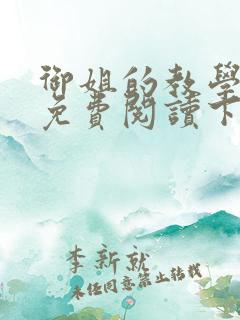 御姐的教學
免費閱讀下
李新就
未經同意禁止轉載